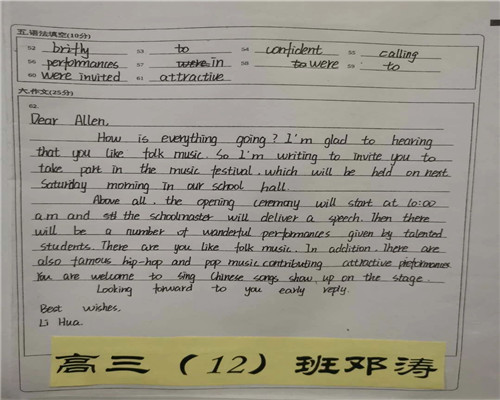 五.语法填空(10分)
52 brifly 53 to 54 confident 55 calling
56 performances 57 were in 58 to were 59 to
60 were invited 61 attractive
六.作文(25分)
62.
Dear Allen,
How is everything going? I'm glad to hearing
that you like folk music. So I'm writing to invite you to
take part in the music festival, which will be held on next
Saturday morning in our school hall.
Above all, the opening ceremony will start at 10:00
a.m and the schoolmaster will deliver a speech. Then there
will be a number of wonderful performances given by talented
students. There are you like folk music. In addition, There are
also famous hip-hop and pop music contributing attractive preformances.
You are welcome to sing Chinese songs show up on the stage.
Looking forward to you early reply.
Best wishes,
Li Hua.
高三（12）班邓涛